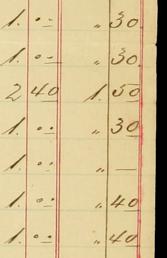 1. " " " 30
1. " " " 30
2 40 1. 50
1. " " " 30
1. " " " —
1. " " " 40
1. " " " 40